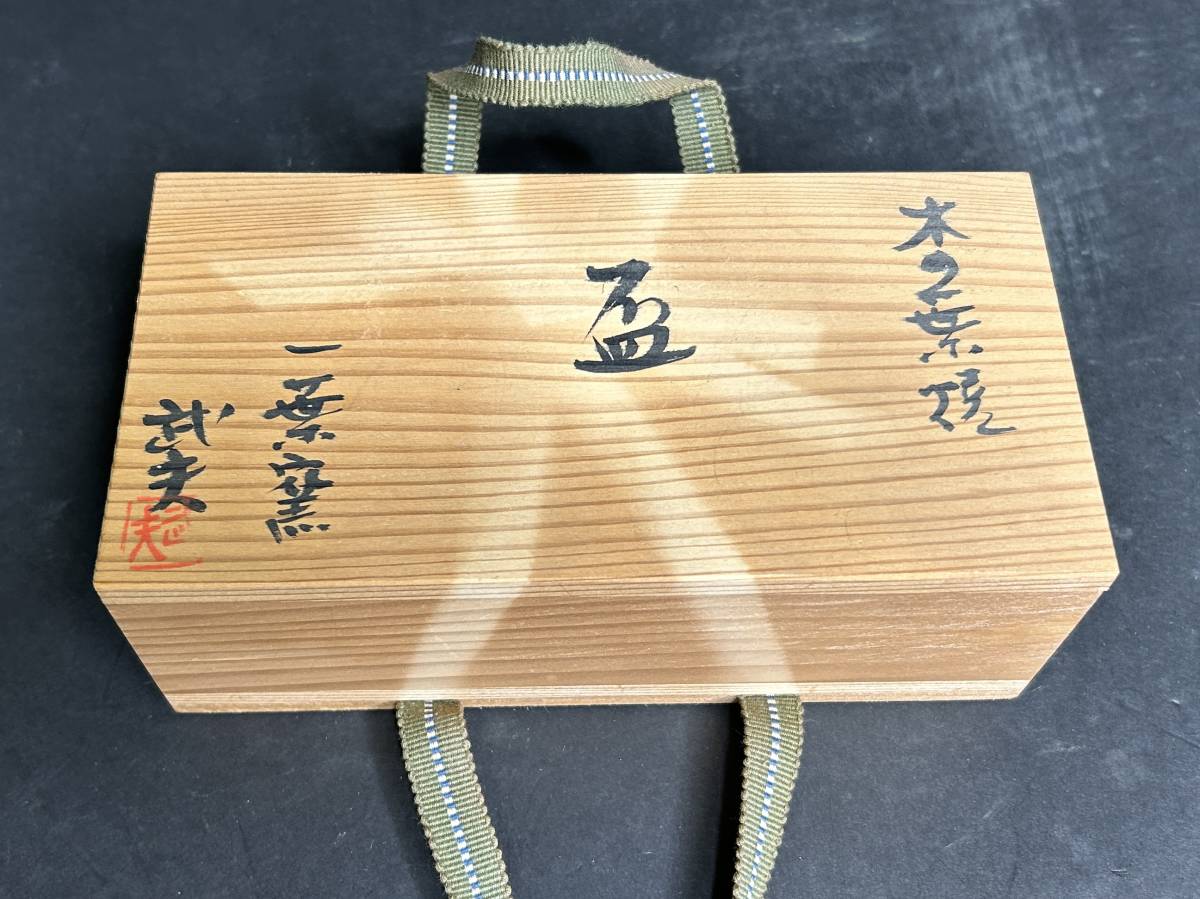 木の葉焼
盃
一葉窯
武夫